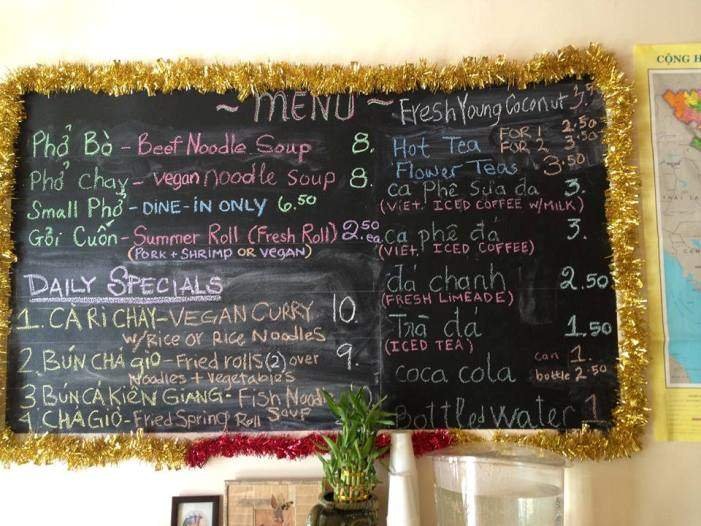 ~ MENU ~
Phở Bò - Beef Noodle Soup 8.
Phở Chay - Vegan noodle soup 8.
Small Phở - DINE-IN ONLY 6.50
Gỏi Cuốn - Summer Roll (Fresh Roll) 2.50 ea.
(PORK + SHRIMP OR VEGAN)
DAILY SPECIALS
1. CÀ RI CHAY - VEGAN CURRY 10.
W/RICE or RICE NOODLES
2. BÚN CHẢ GIÒ - Fried rolls (2) over 9.
Noodles + Vegetables
3 BÚN CÁ KIÊN GIANG - FISH Noodle
SOUP
CHẢ GIÒ - Fried Spring Roll
Fresh Young Coconut 3.5
Hot Tea FOR 1 2.50
FOR 2 3.50
Flower Teas 3.50
cà Phê Sữa đá 3.
(VIET. ICED COFFEE W/MILK)
cà phê đá 3.
(VIET. ICED COFFEE)
đá chanh 2.50
(FRESH LIMEADE)
Trà đá 1.50
(ICED TEA)
coca cola can 1.
bottle 2.50
Bottled water 1
CỘNG H